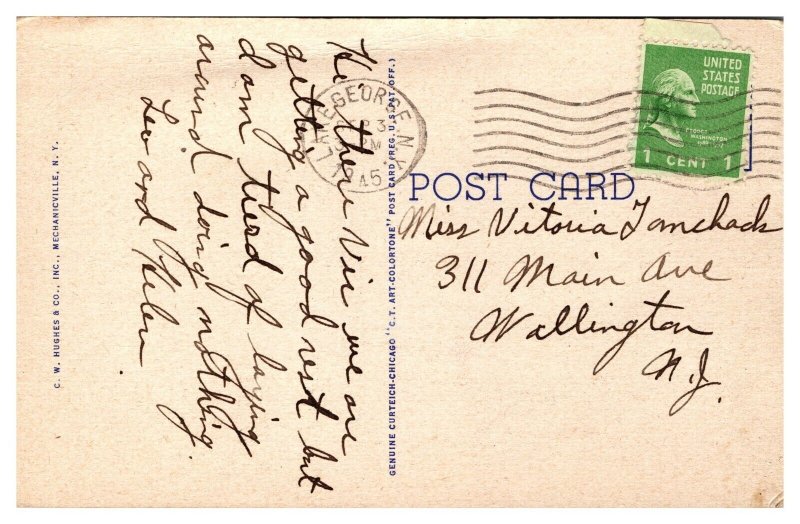 Hi' there Vic we are
getting a good rest but
dam tierd of laying
around doing nothing.
Leo and Helen.
C. W. HUGHES & CO., INC., MECHANICVILLE, N. Y.
GENUINE CURTEICH-CHICAGO "C. T. ART-COLORTONE" POST CARD (REG. U.S. PAT. OFF.)
LAKE GEORGE N.Y.
SEP 3
PM
1945
UNITED
STATES
POSTAGE
GEORGE
WASHINGTON
1 CENT 1
POST CARD
Miss Vitoria Tomchack
311 Main Ave
Wallington
N.J.